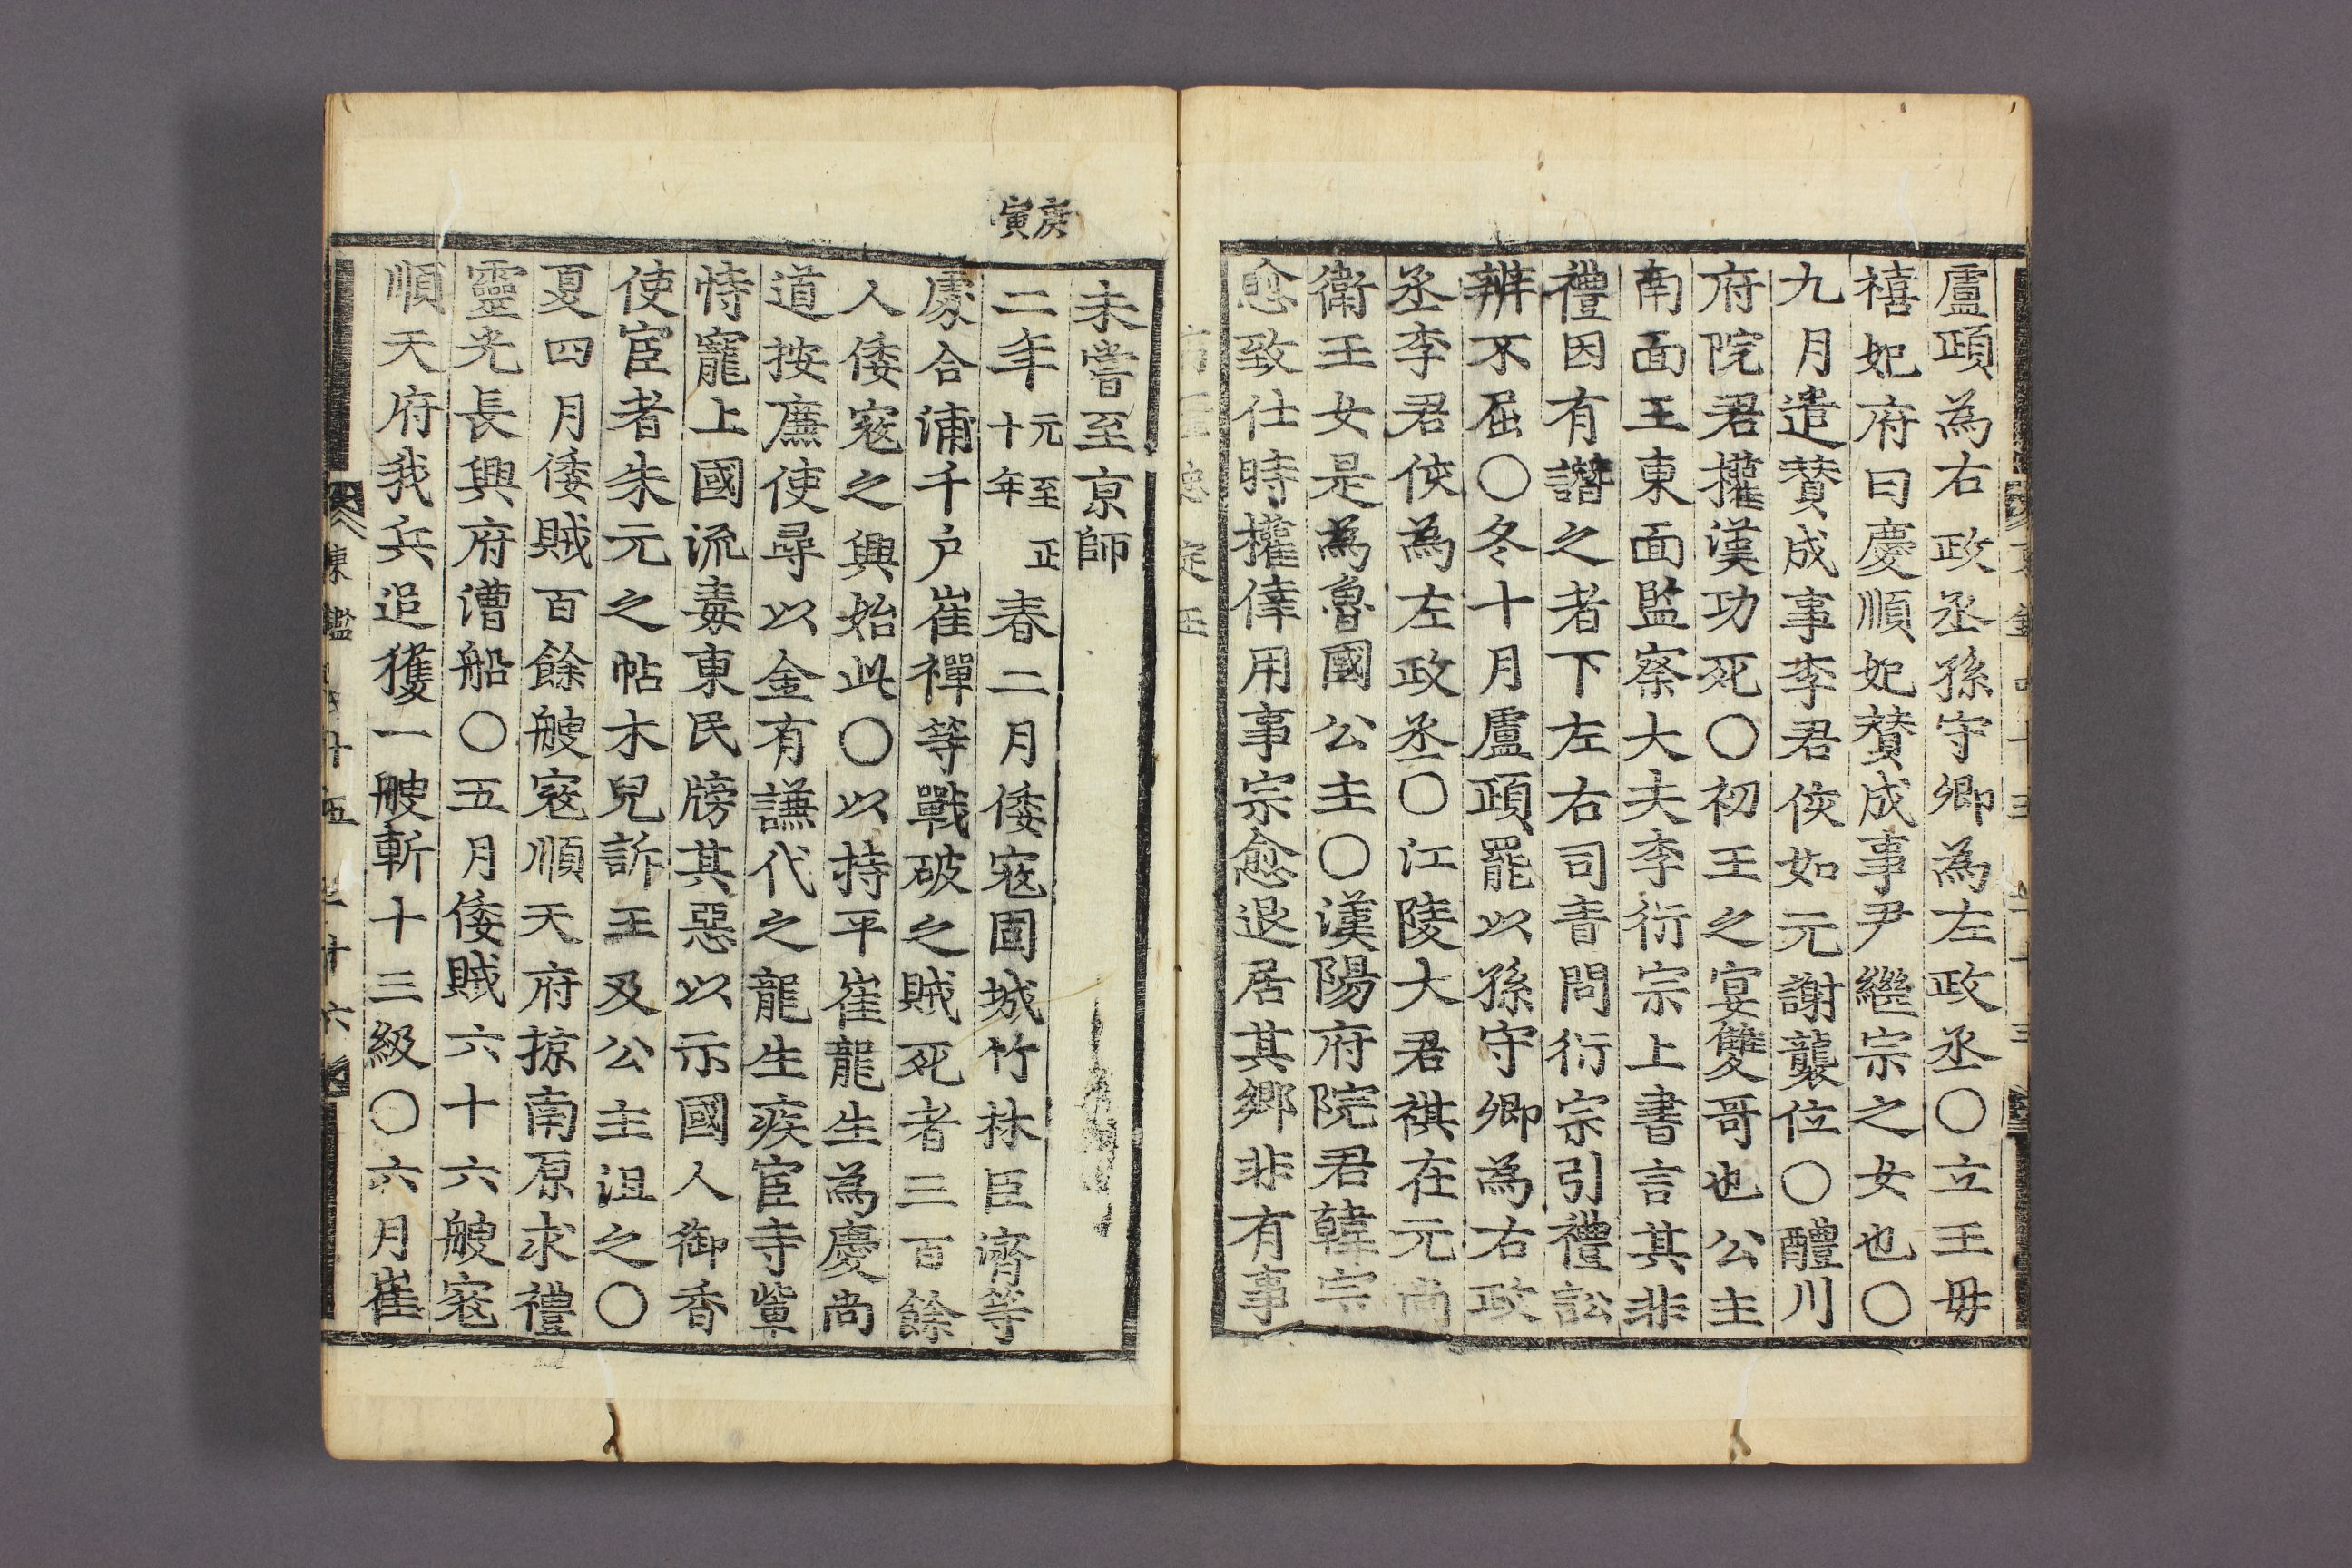 盧頙為右政丞孫守卿為左政丞〇立王毋
禧妃府曰慶順妃賛成事尹繼宗之女也〇
九月遣賛成事李君侅如元謝襲位〇醴川
府院君權漢功死〇初王之宴雙哥也公主
南面王東面監察大夫李衍宗上書言其非
禮因有譖之者下左右司責問衍宗引禮訟
辨不屈〇冬十月盧頙罷以孫守卿為右政
丞李君侅為左政丞〇江陵大君祺在元尚
衛王女是為魯國公主〇漢陽府院君韓宗
愈致仕時權倖用事宗愈退居其鄉非有事
庚寅
未嘗至京師
二年元至正十年春二月倭寇固城竹林臣濟等
處合浦千户崔禪等戰破之賊死者三百餘
人倭寇之興始此〇以持平崔龍生為慶尚
道按廉使尋以金有謙代之龍生疾宦寺軰
恃寵上國流毒東民牓其惡以示國人御香
使宦者朱元之帖木兒訴王及公主沮之〇
夏四月倭賊百餘艘寇順天府掠南原求禮
靈光長興府漕船〇五月倭賊六十六艘寇
順天府我兵追獲一艘斬十三級〇六月崔
東鑑 十五 三十六